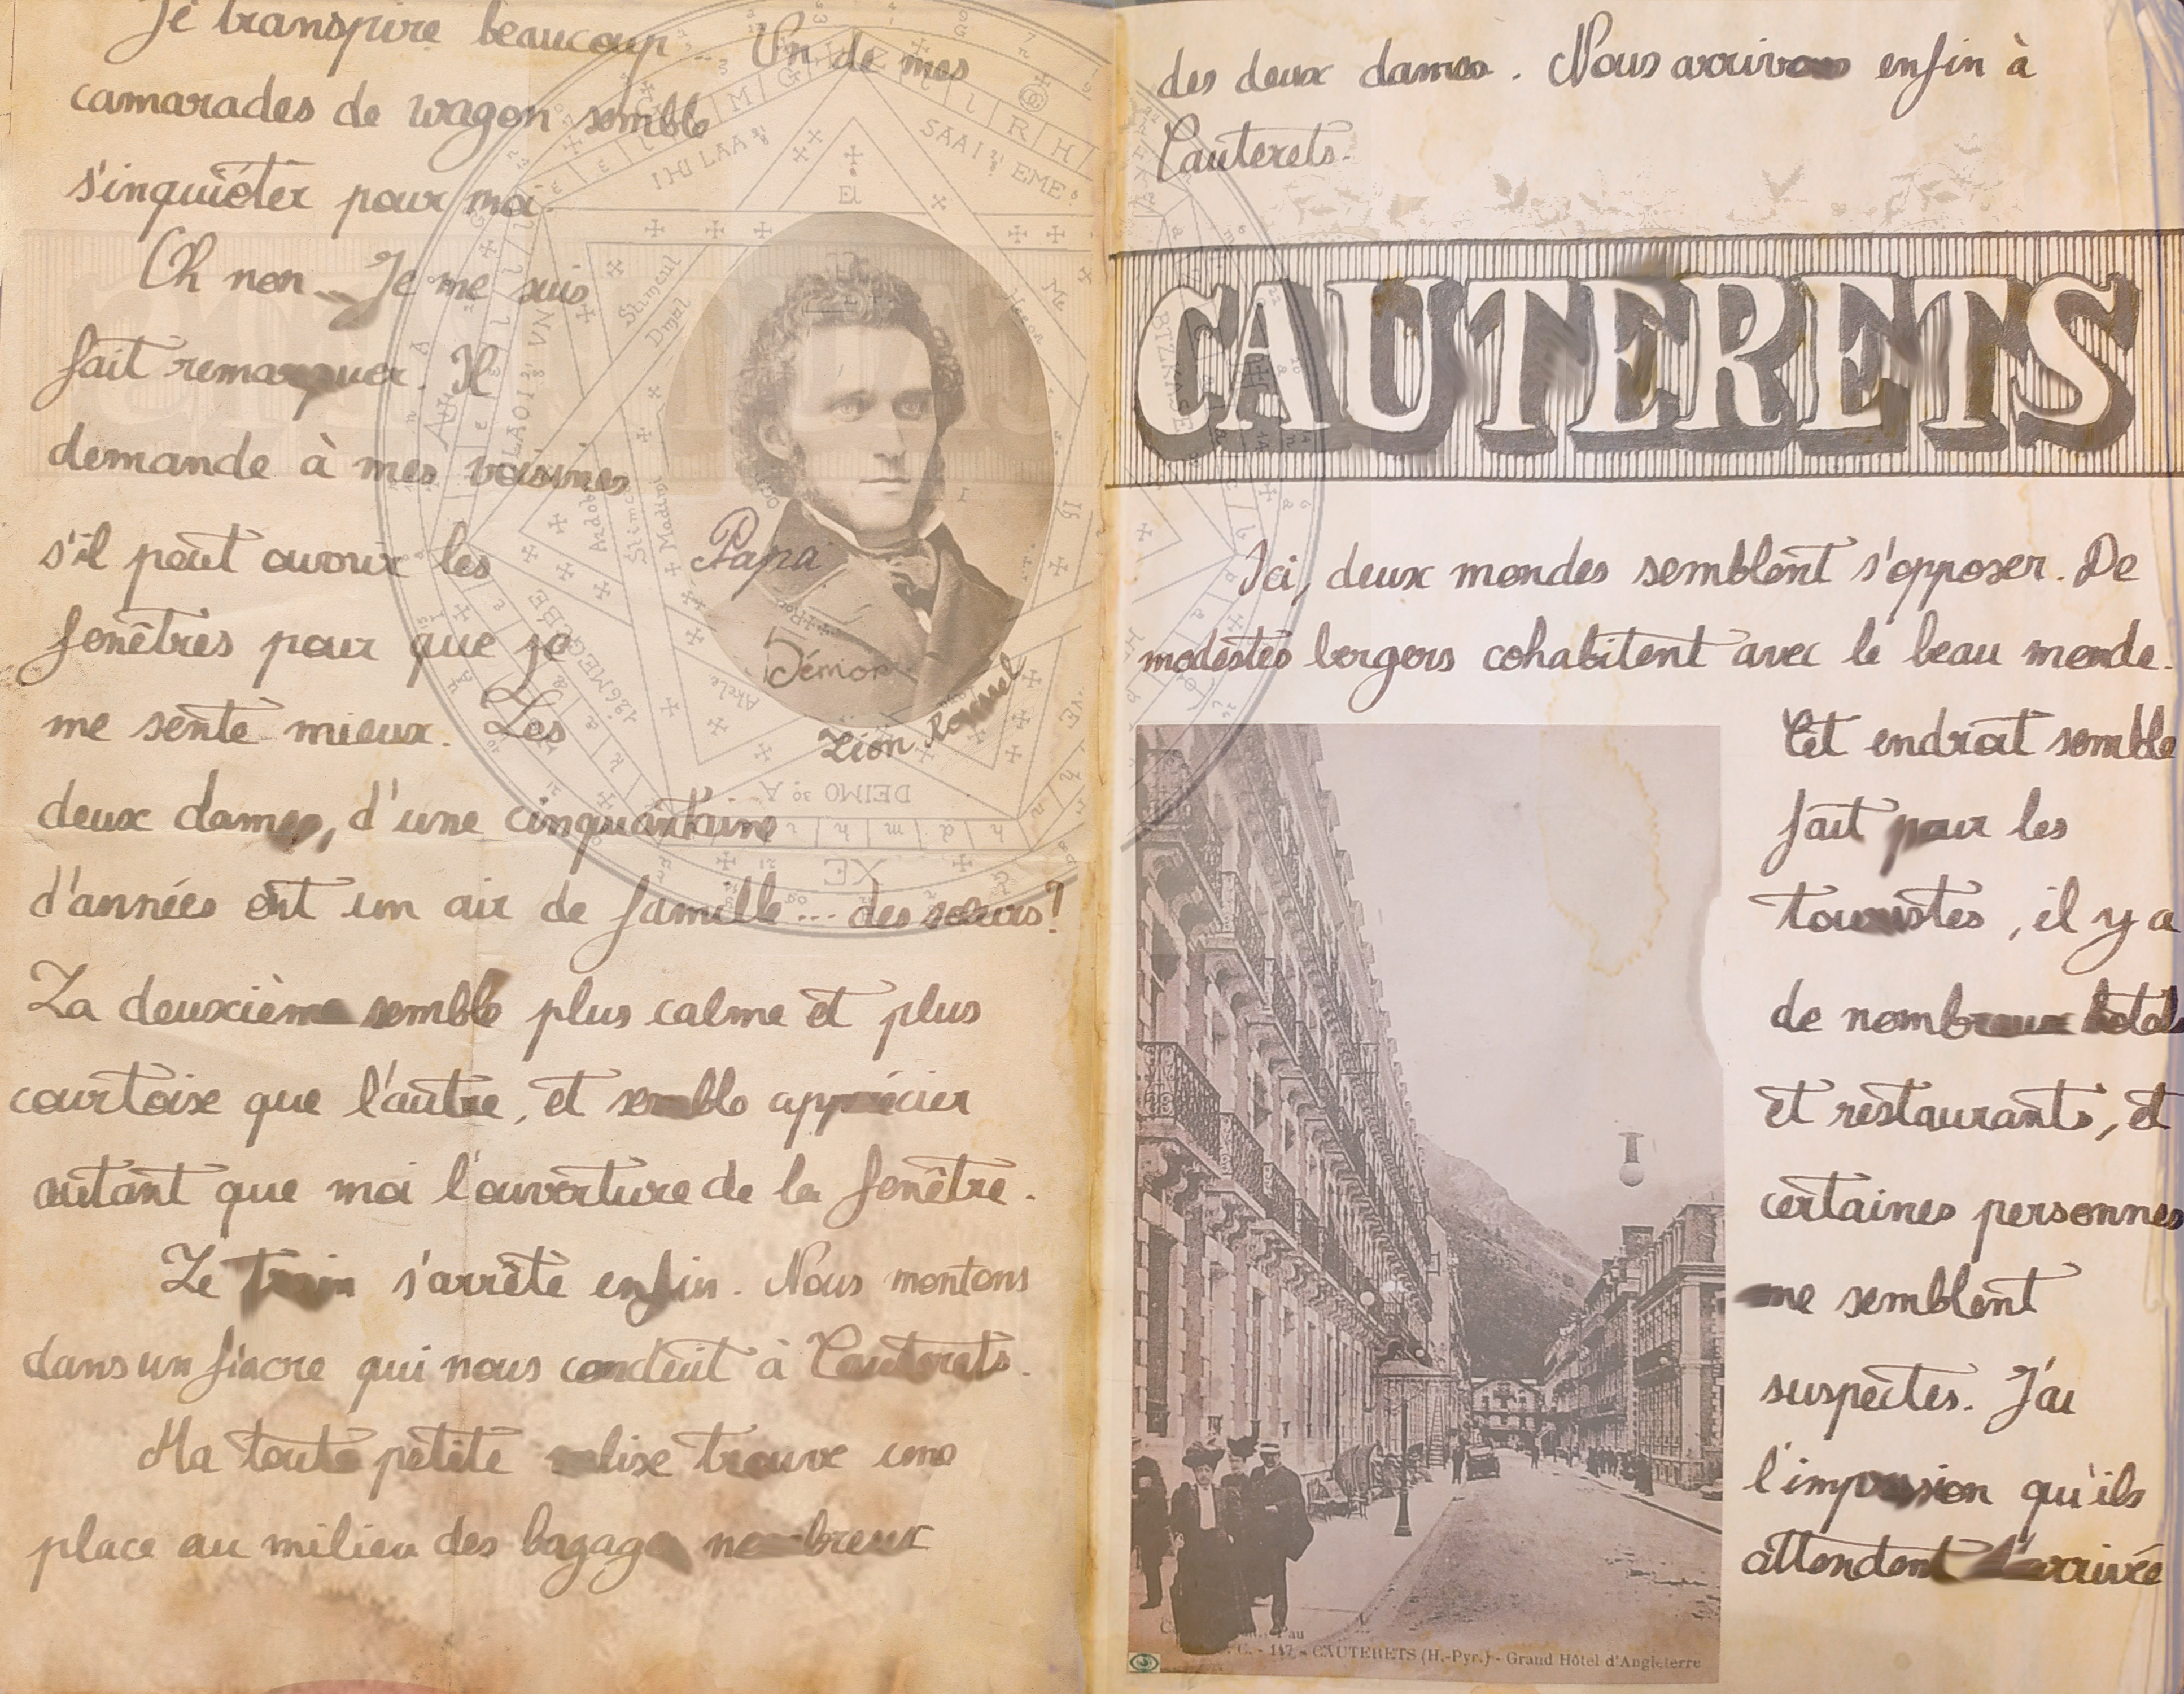 Je transpire beaucoup... Un de mes
camarades de wagon semble
s'inquiéter pour moi.
Oh non... Je me suis
fait remarquer. Il
demande à mes voisines
s'il peut ouvrir les
fenêtres pour que je
me sente mieux. Les
deux dames, d'une cinquantaine
d'années ont un air de famille... des sœurs?
La deuxième semble plus calme et plus
courtoise que l'autre, et semble apprécier
autant que moi l'ouverture de la fenêtre.
Le train s'arrête enfin. Nous montons
dans un fiacre qui nous conduit à Cauterets.
Ma toute petite valise trouve une
place au milieu des bagages nombreux
Papa
Démon
Léon Roussel
El
IHU LAA
SAAI EME
Stimcul
Dmal
VN
LAOI
Madimi
126MEGCBE
Akele
DEIMO 30 A
XE
VE
Me
des deux dames. Nous arrivons enfin à
Cauterets.
CAUTERETS
Ici, deux mondes semblent s'opposer. De
modestes bergers cohabitent avec le beau monde.
Cet endroit semble
fait pour les
touristes, il y a
de nombreux hotels
et restaurants, et
certaines personnes
me semblent
suspectes. J'ai
l'impression qu'ils
attendent l'arrivée
Pau
C. - 117 - CAUTERETS (H.-Pyr.) - Grand Hôtel d'Angleterre